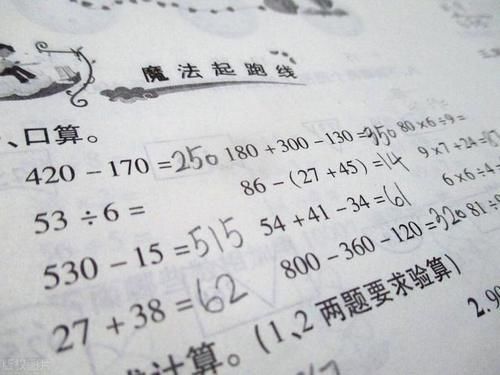 魔法起跑线
、口算。
420 − 170 = 250 180 + 300 − 130 = 350 80 × 6 ÷ 9 =
53 ÷ 6 = 86 − (27 + 45) = 14 9 × 7 + 24 =
530 − 15 = 515 54 + 41 − 34 = 61 6 × 6 ÷ 4 =
27 + 38 = 62 800 − 360 − 120 = 320 81 ÷
计算。(1、2 两题要求验算)
2.90